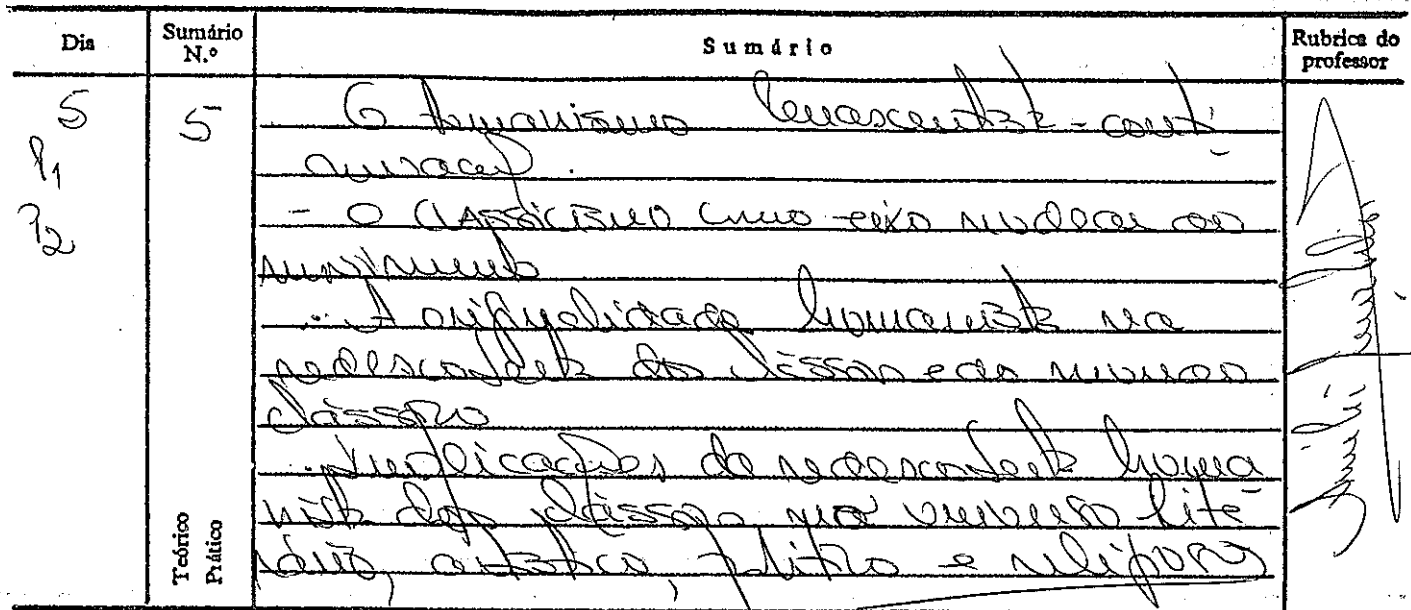 Dia Sumário N.º Sumário Rubrica do professor
5 5 O Humanismo renascentista - conti
P1 nuação.
P2 - O Classicismo como eixo nuclear do
movimento
.. A originalidade humanista na
redescoberta dos clássicos e do mundo
clássico
.. Implicações da redescoberta huma
nista dos clássicos no universo lite
rário, artístico, político e religioso
Teórico
Prático